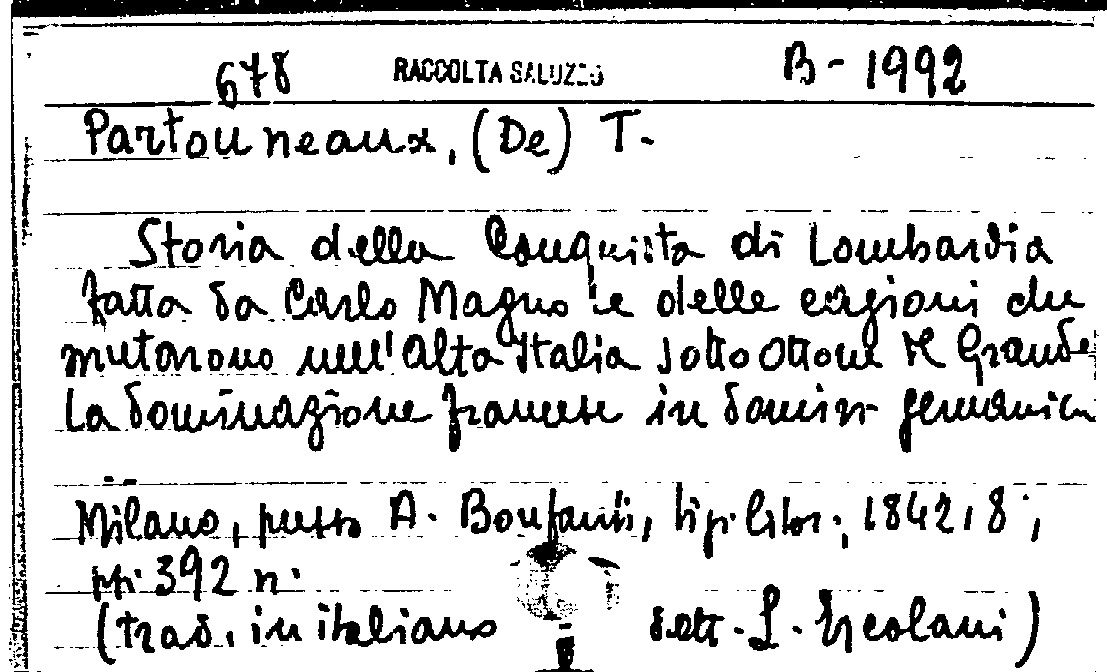 678 RACCOLTA SALUZZO B-1992
Partouneaux, (De) T.
Storia della Conquista di Lombardia
fatta da Carlo Magno e delle cagioni che
mutarono nell'Alta Italia sotto Ottone il Grande
la dominazione francese in dominio germanico
Milano, presso A. Bonfanti, tip. litor., 1842, 8°,
pp. 392 n.
(trad. in italiano dott. L. Ercolani)